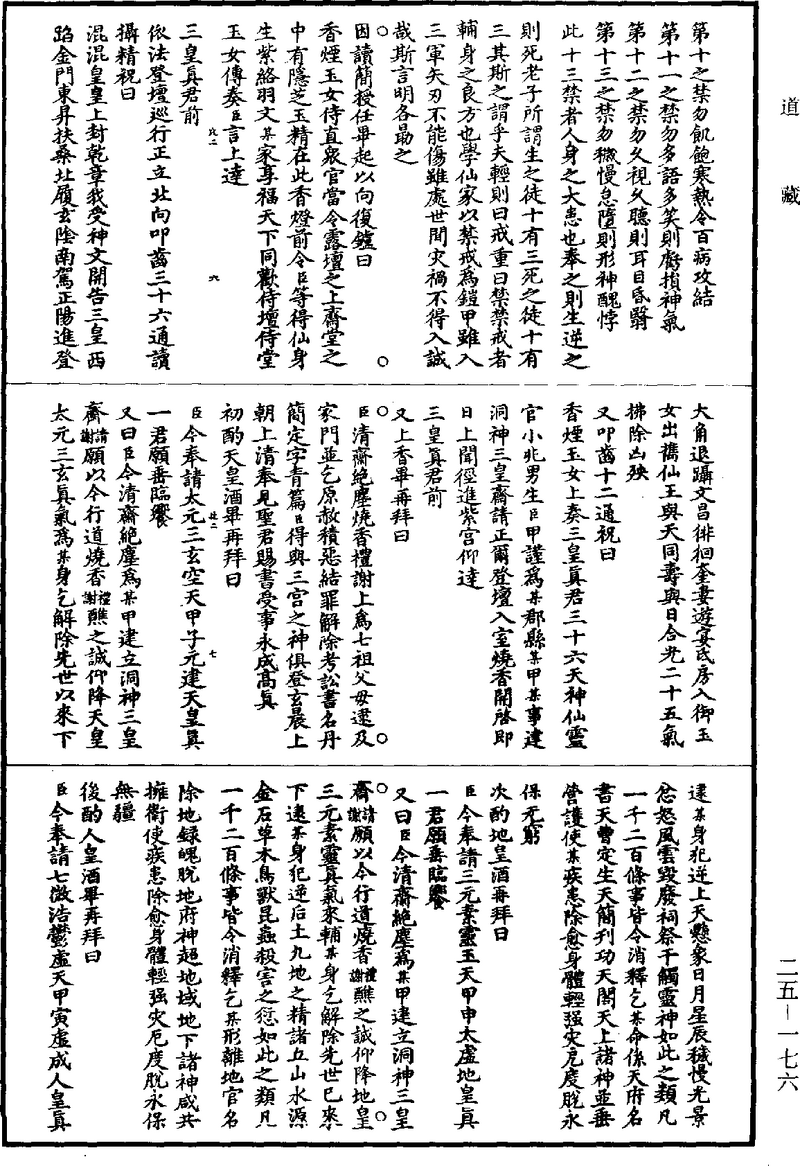 道藏
第十之禁勿飢飽寒熱令百病攻結
第十一之禁勿多語多笑則虧損神氣
第十二之禁勿久視久聽則耳目昏翳
第十三之禁勿穢慢怠隨則形神醜悖
此十三禁者人身之大患也奉之則生逆之
則死老子所謂生之徒十有三死之徒十有
三其斯之謂乎夫輕則曰戒重曰禁禁戒者
輔身之良方也學仙家以禁戒為鎧甲雖入
三軍矢刃不能傷雖處世間灾禍不得入誠
哉斯言明各勗之
因讀簡授任畢起以向復鑪曰
香煙玉女侍直衆官當令露壇之上齋堂之
中有隱芝玉精在此香燈前令臣等得仙身
生紫絡羽文某家享福天下同歡侍壇侍堂
玉女傳奏臣言上達
三皇真君前
依法登壇巡行正立北向叩齒三十六通讀
攝精祝曰
混混皇皇上封乾章我受神文開告三皇西
蹈金門東昇扶桑北履玄陰南駕正陽進登
大角退躡文昌徘徊奎婁遊宴氐房入御玉
女出攜仙王與天同壽與日合光二十五氣
拂除凶殃
又叩齒十二通祝曰
香煙玉女上奏三皇真君三十六天神仙靈
官小兆男生臣甲謹為某郡縣某甲某事建
洞神三皇齋請正爾登壇入室燒香開啓即
日上聞徑進紫宮仰達
三皇真君前
又上香畢再拜曰
臣清齋絶塵燒香禮謝上為七祖父母逮及
家門並乞原赦積惡結罪解除考訟書名丹
簡定字青篇臣得與三宮之神俱登玄晨上
朝上清奉見聖君賜書受事永成高真
初酌天皇酒畢再拜曰
臣今奉請太元三玄空天甲子元建天皇真
一君願垂臨饗
又曰臣今清齋絶塵為某甲建立洞神三皇
齋請謝願以今行道燒香禮謝醮之誠仰降天皇
太元三玄真氣為某身乞解除先世以來下
逮某身犯逆上天懸象日月星辰穢慢光景
忿怒風雲毀廢祠祭干觸靈神如此之類凡
一千二百條事皆令消釋乞某命係天府名
書天曹定生天簡刊功天閣天上諸神並垂
營護使某疾患除愈身體輕强灾厄度脫永
保无窮
次酌地皇酒再拜曰
臣今奉請三元素靈玉天甲申太虛地皇真
一君願垂臨饗
又曰臣今清齋絶塵為某甲建立洞神三皇
齋請謝願以今行道燒香禮謝醮之誠仰降地皇
三元素靈真氣來輔某身乞解除先世已來
下逮某身犯逆后土九地之精諸五山水源
金石草木鳥獸昆蟲殺害之愆如此之類凡
一千二百條事皆令消釋乞某形離地官名
除地錄魄脫地府神超地域地下諸神咸共
擁衛使疾患除愈身體輕强灾厄度脫永保
無疆
後酌人皇酒畢再拜曰
臣今奉請七微浩鬱虛天甲寅虛成人皇真
二五—一七六